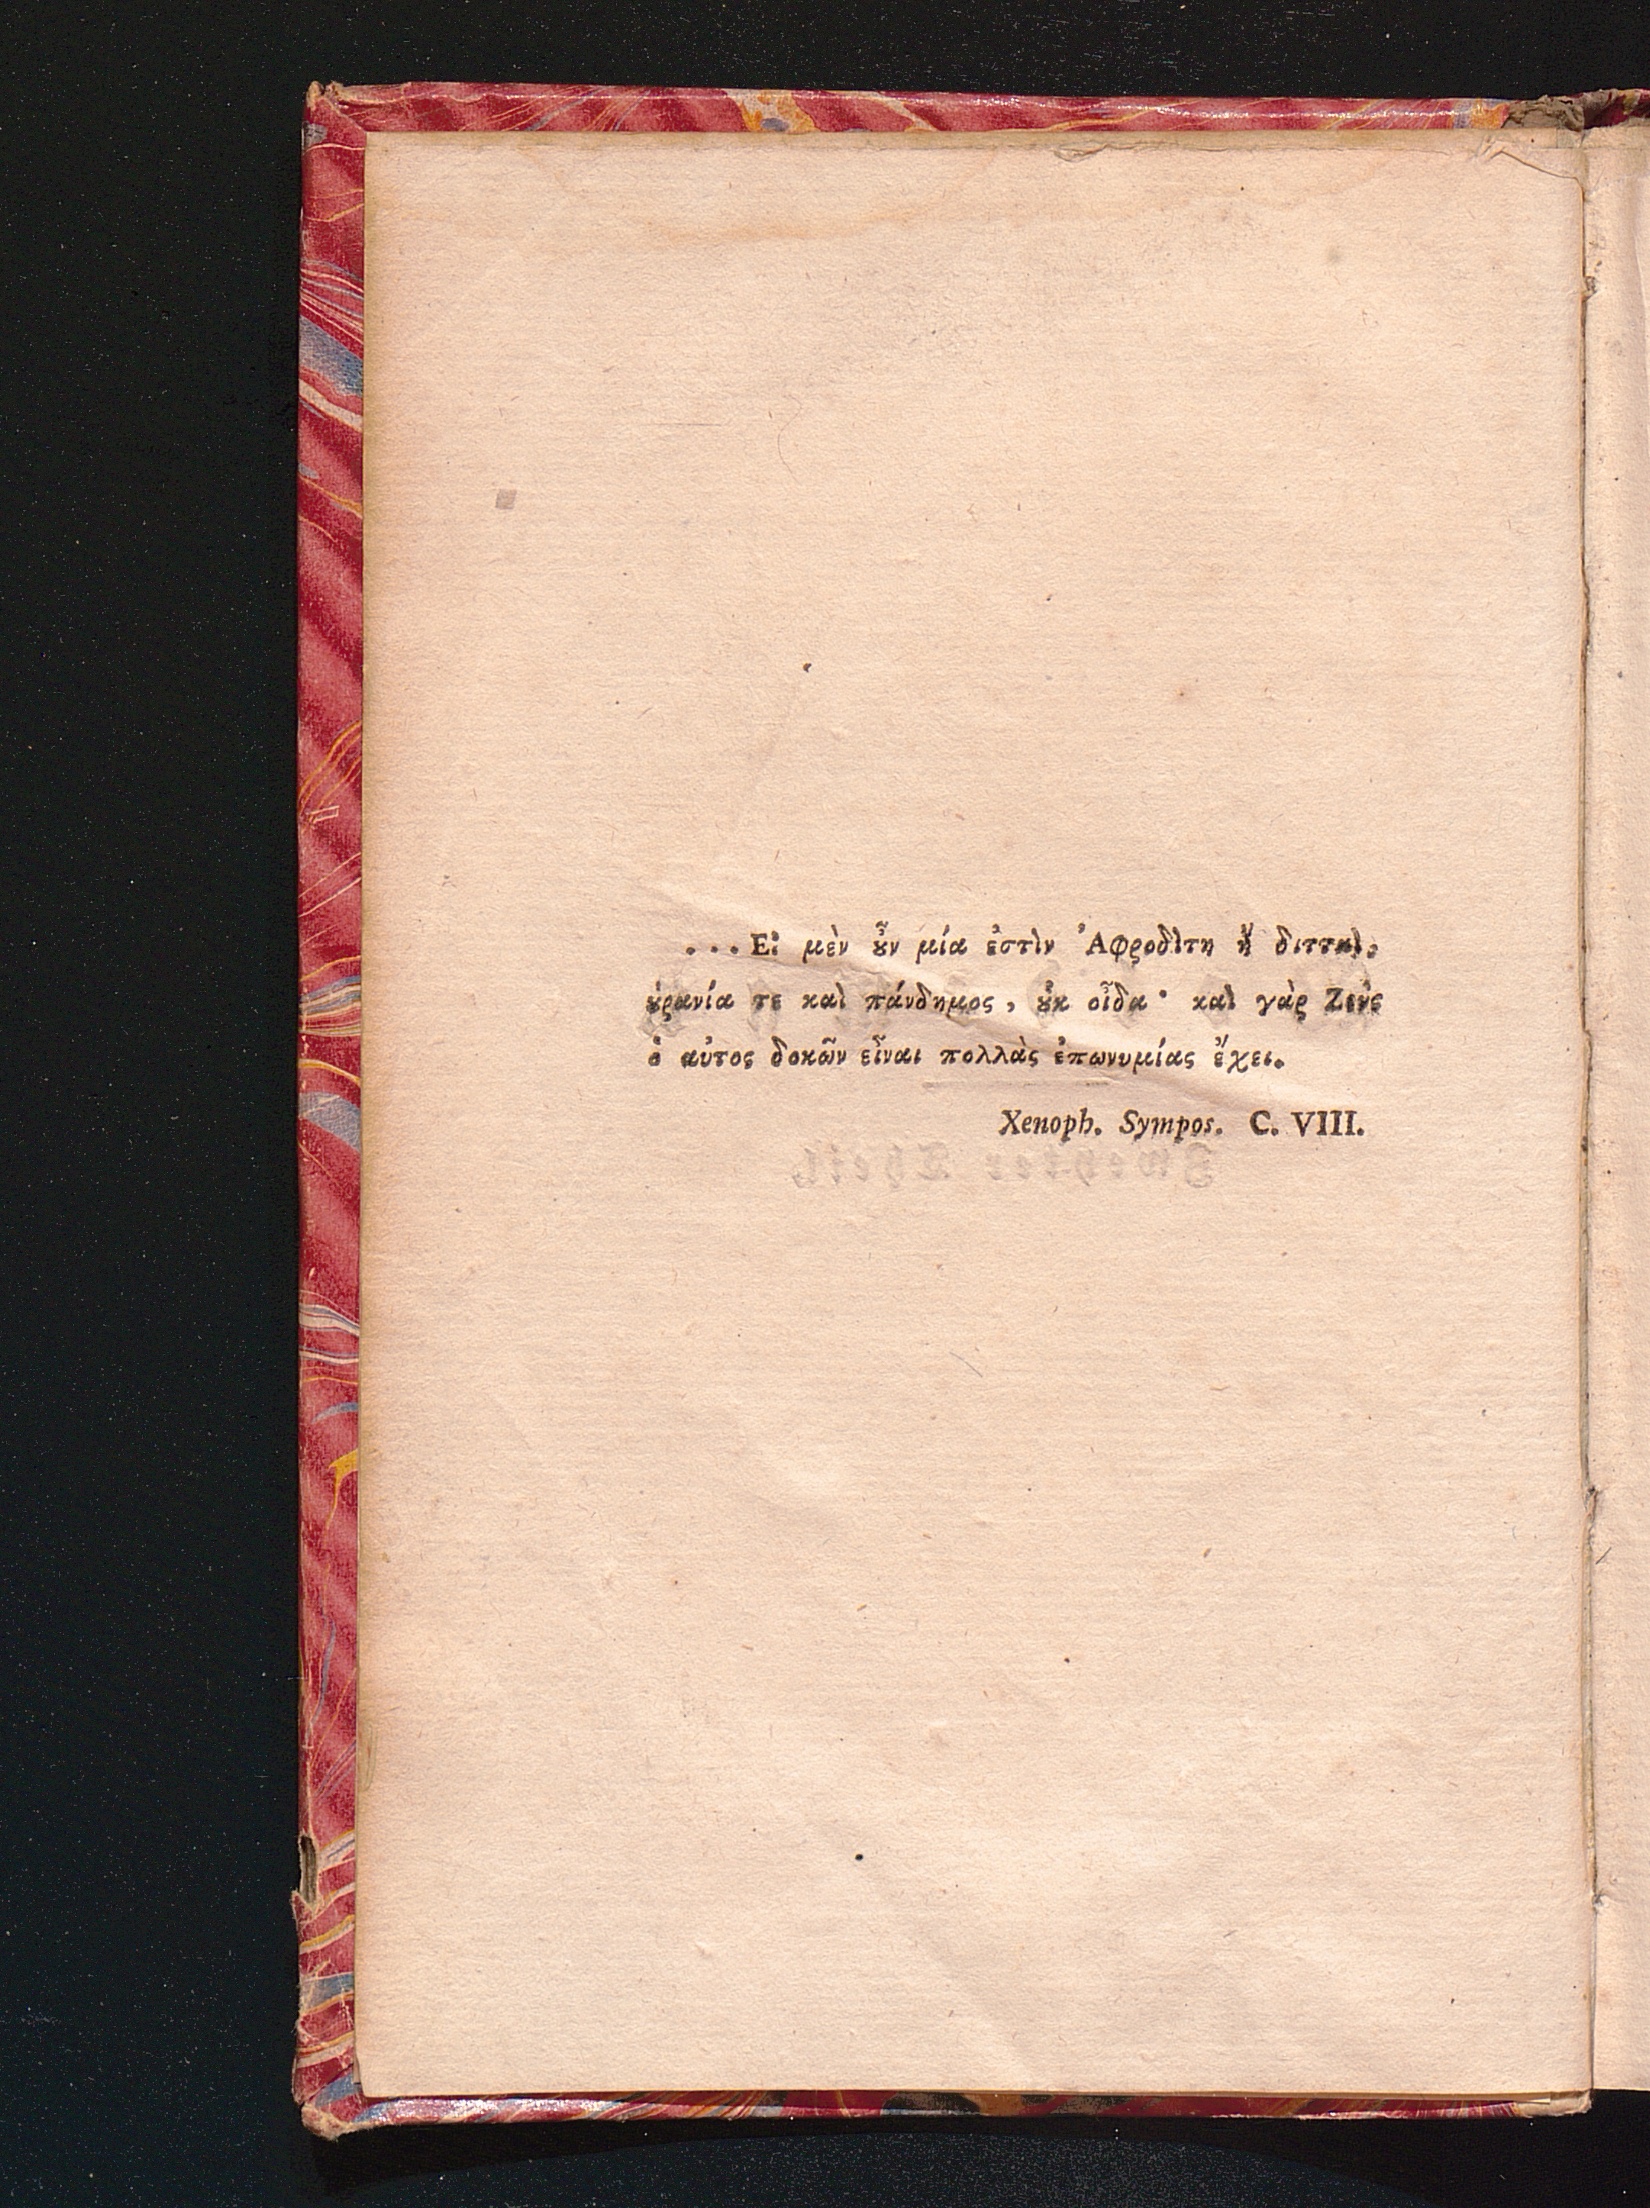 ...Εἰ μὲν ȣ̃̓ν μία ἐστὶν Ἀφροδίτη ἢ διτταὶ,
ȣ̓ρανία τε καὶ πάνδημος, ȣ̓κ οἶδα· καὶ γὰρ Ζεὺς
ὁ αὐτος δοκῶν εἶναι πολλὰς ἐπωνυμίας ἔχει.
Xenoph. Sympos. C. VIII.
Zweyter Theil